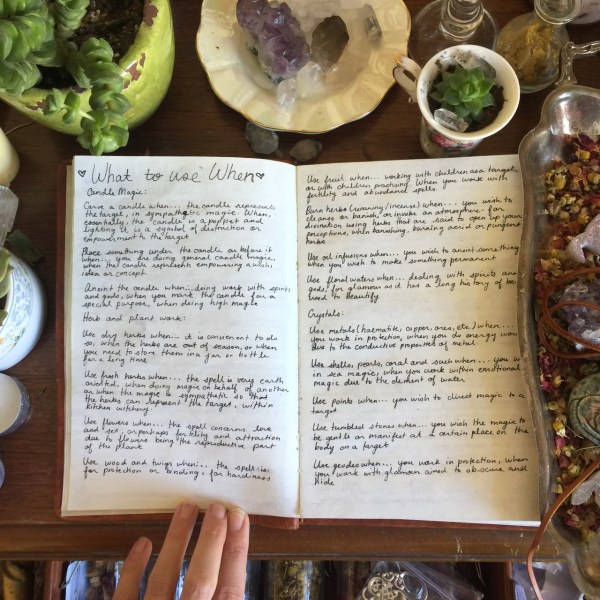 ♥ What to use When ♥
Candle Magic:
Carve a candle when... the candle represents
the target, in sympathetic magic. When,
essentially, the candle is a poppet and
lighting it is a symbol of destruction or
empowerment to the target
Place something under the candle or before it
when... you are doing general candle magic,
when the candle represents empowering a wish,
idea or concept.
Anoint the candle when... doing work with spirits
and gods, when you mark the candle for a
special purpose, when doing high magic
Herb and plant work:
Use dry herbs when... it is convenient to do
so, when the herbs are out of season, or when
you need to store them in a jar or bottle
for a long time.
Use fresh herbs when... the spell is very earth
oriented, when doing magic on behalf of another
or when the magic is sympathetic so that
the herbs can represent the target, within
kitchen witching.
Use flowers when... the spell concerns love
and sex, or perhaps fertility and attraction
due to flowers being the reproductive part
of the plant
Use wood and twigs when... the spell is
for protection or binding, for hardiness
Use fruit when... working with children as a target,
or with children practising. When you work with
fertility and abundance spells.
Burn herbs (evening/incense) when... you wish to
cleanse or banish, or invoke an atmosphere, for
divination using herbs that are said to open up your
perceptions, when banishing, burning acrid or pungent
herbs
Use oil infusions when... you wish to anoint something
when you wish to make something permanent
Use floral waters when... dealing with spirits and
gods, for glamour as it has a long history of being
used to beautify.
Crystals:
Use metals (haematite, copper, ores, etc) when...
you work in protection, when you do energy work
due to the conductive properties of metal
Use shells, pearls, coral and such when... you work
in sea magic, when you work within emotional
magic due to the element of water
Use points when... you wish to direct magic to a
target
Use tumbled stones when... you wish the magic to
be gentle or manifest at a certain place on the
body or a target
Use geodes when... you work in protection, when
you work with glamour aimed to obscure and
hide